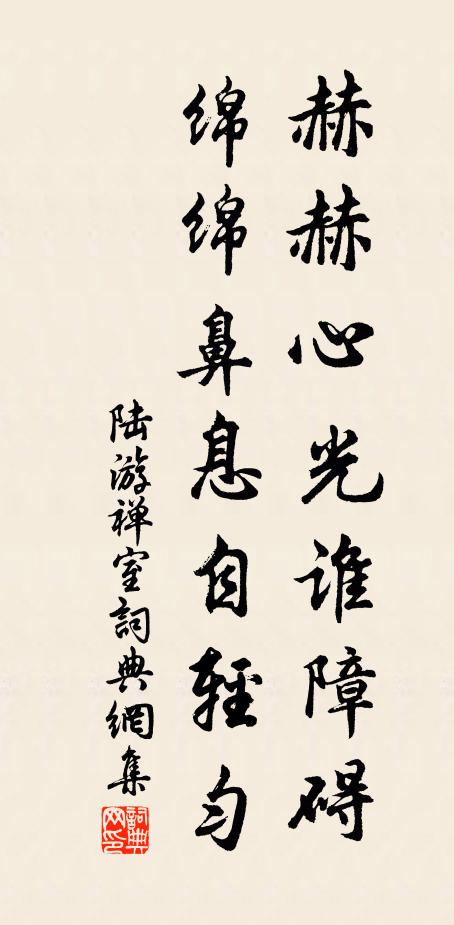 赫赫心光谁障碍
绵绵鼻息自輕匀
陆游禅室詞典網集
詞典网印